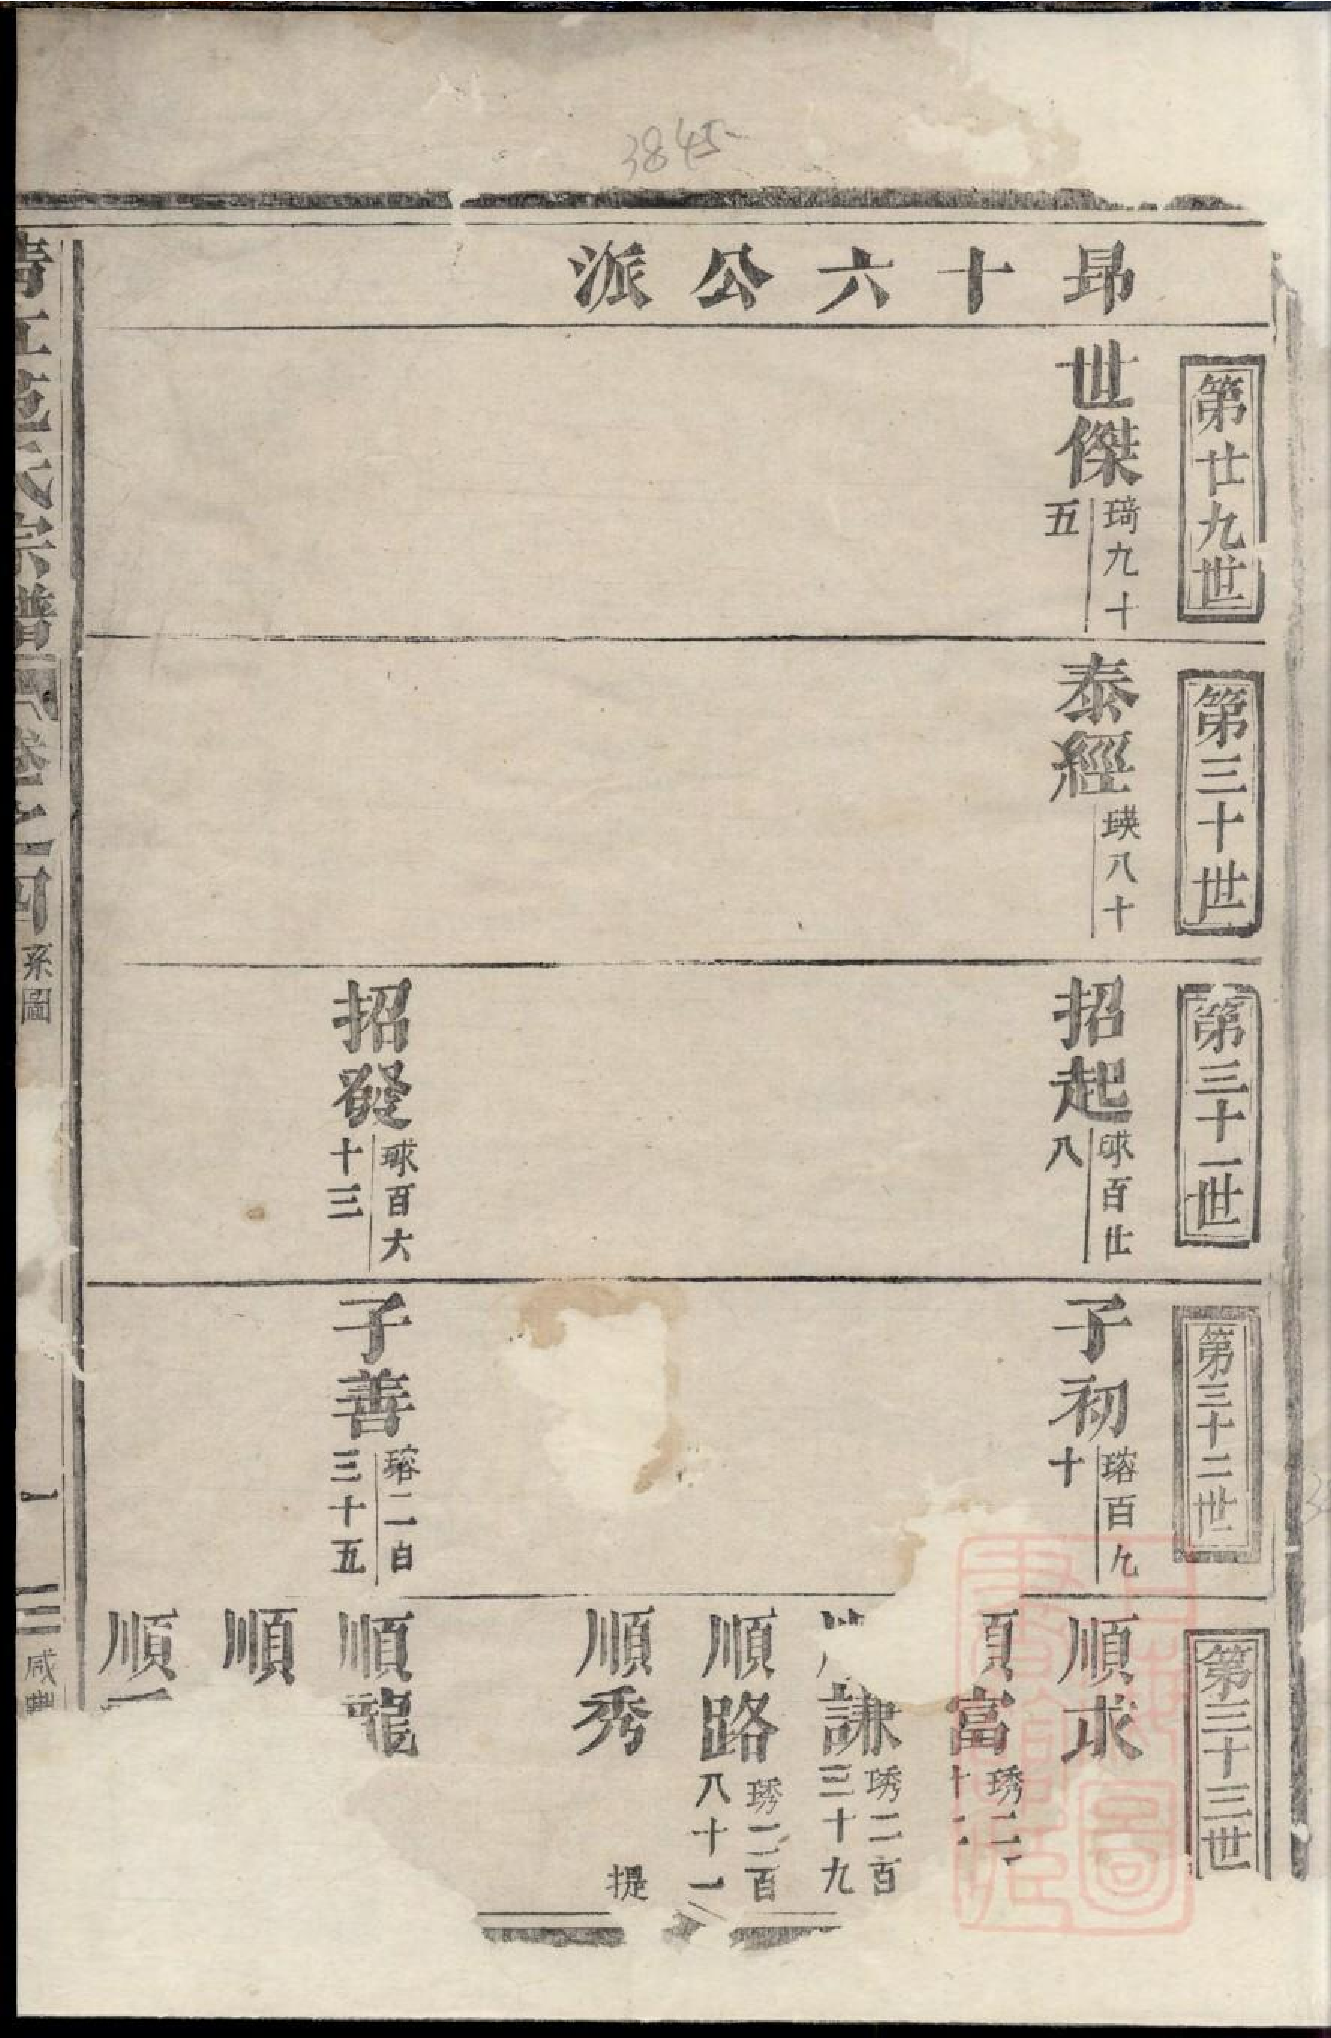 3845
昂十六公派
第廿九世
世傑
琦九十
五
第三十世
泰經
瑛八十
第三十一世
招起
球百廿
八
招發
球百六
十三
第三十二世
子初
瑢百九
十
子善
瑢二百
三十五
第三十三世
順求
順富
琇二
十二
謙
琇二百
三十九
順路
琇二百
八十一
順秀
提
順龍
順
順
清江范氏宗譜
卷之四
系圖
一
咸豐